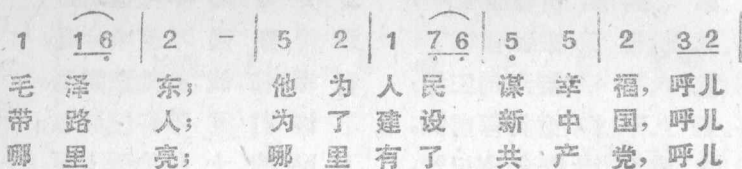 1 1 6 | 2 - | 5 2 | 1 7 6 | 5 5 | 2 3 2 |
毛 泽 东; 他 为 人 民 谋 幸 福, 呼儿
带 路 人; 为 了 建 设 新 中 国, 呼儿
哪 里 亮; 哪 里 有 了 共 产 党, 呼儿